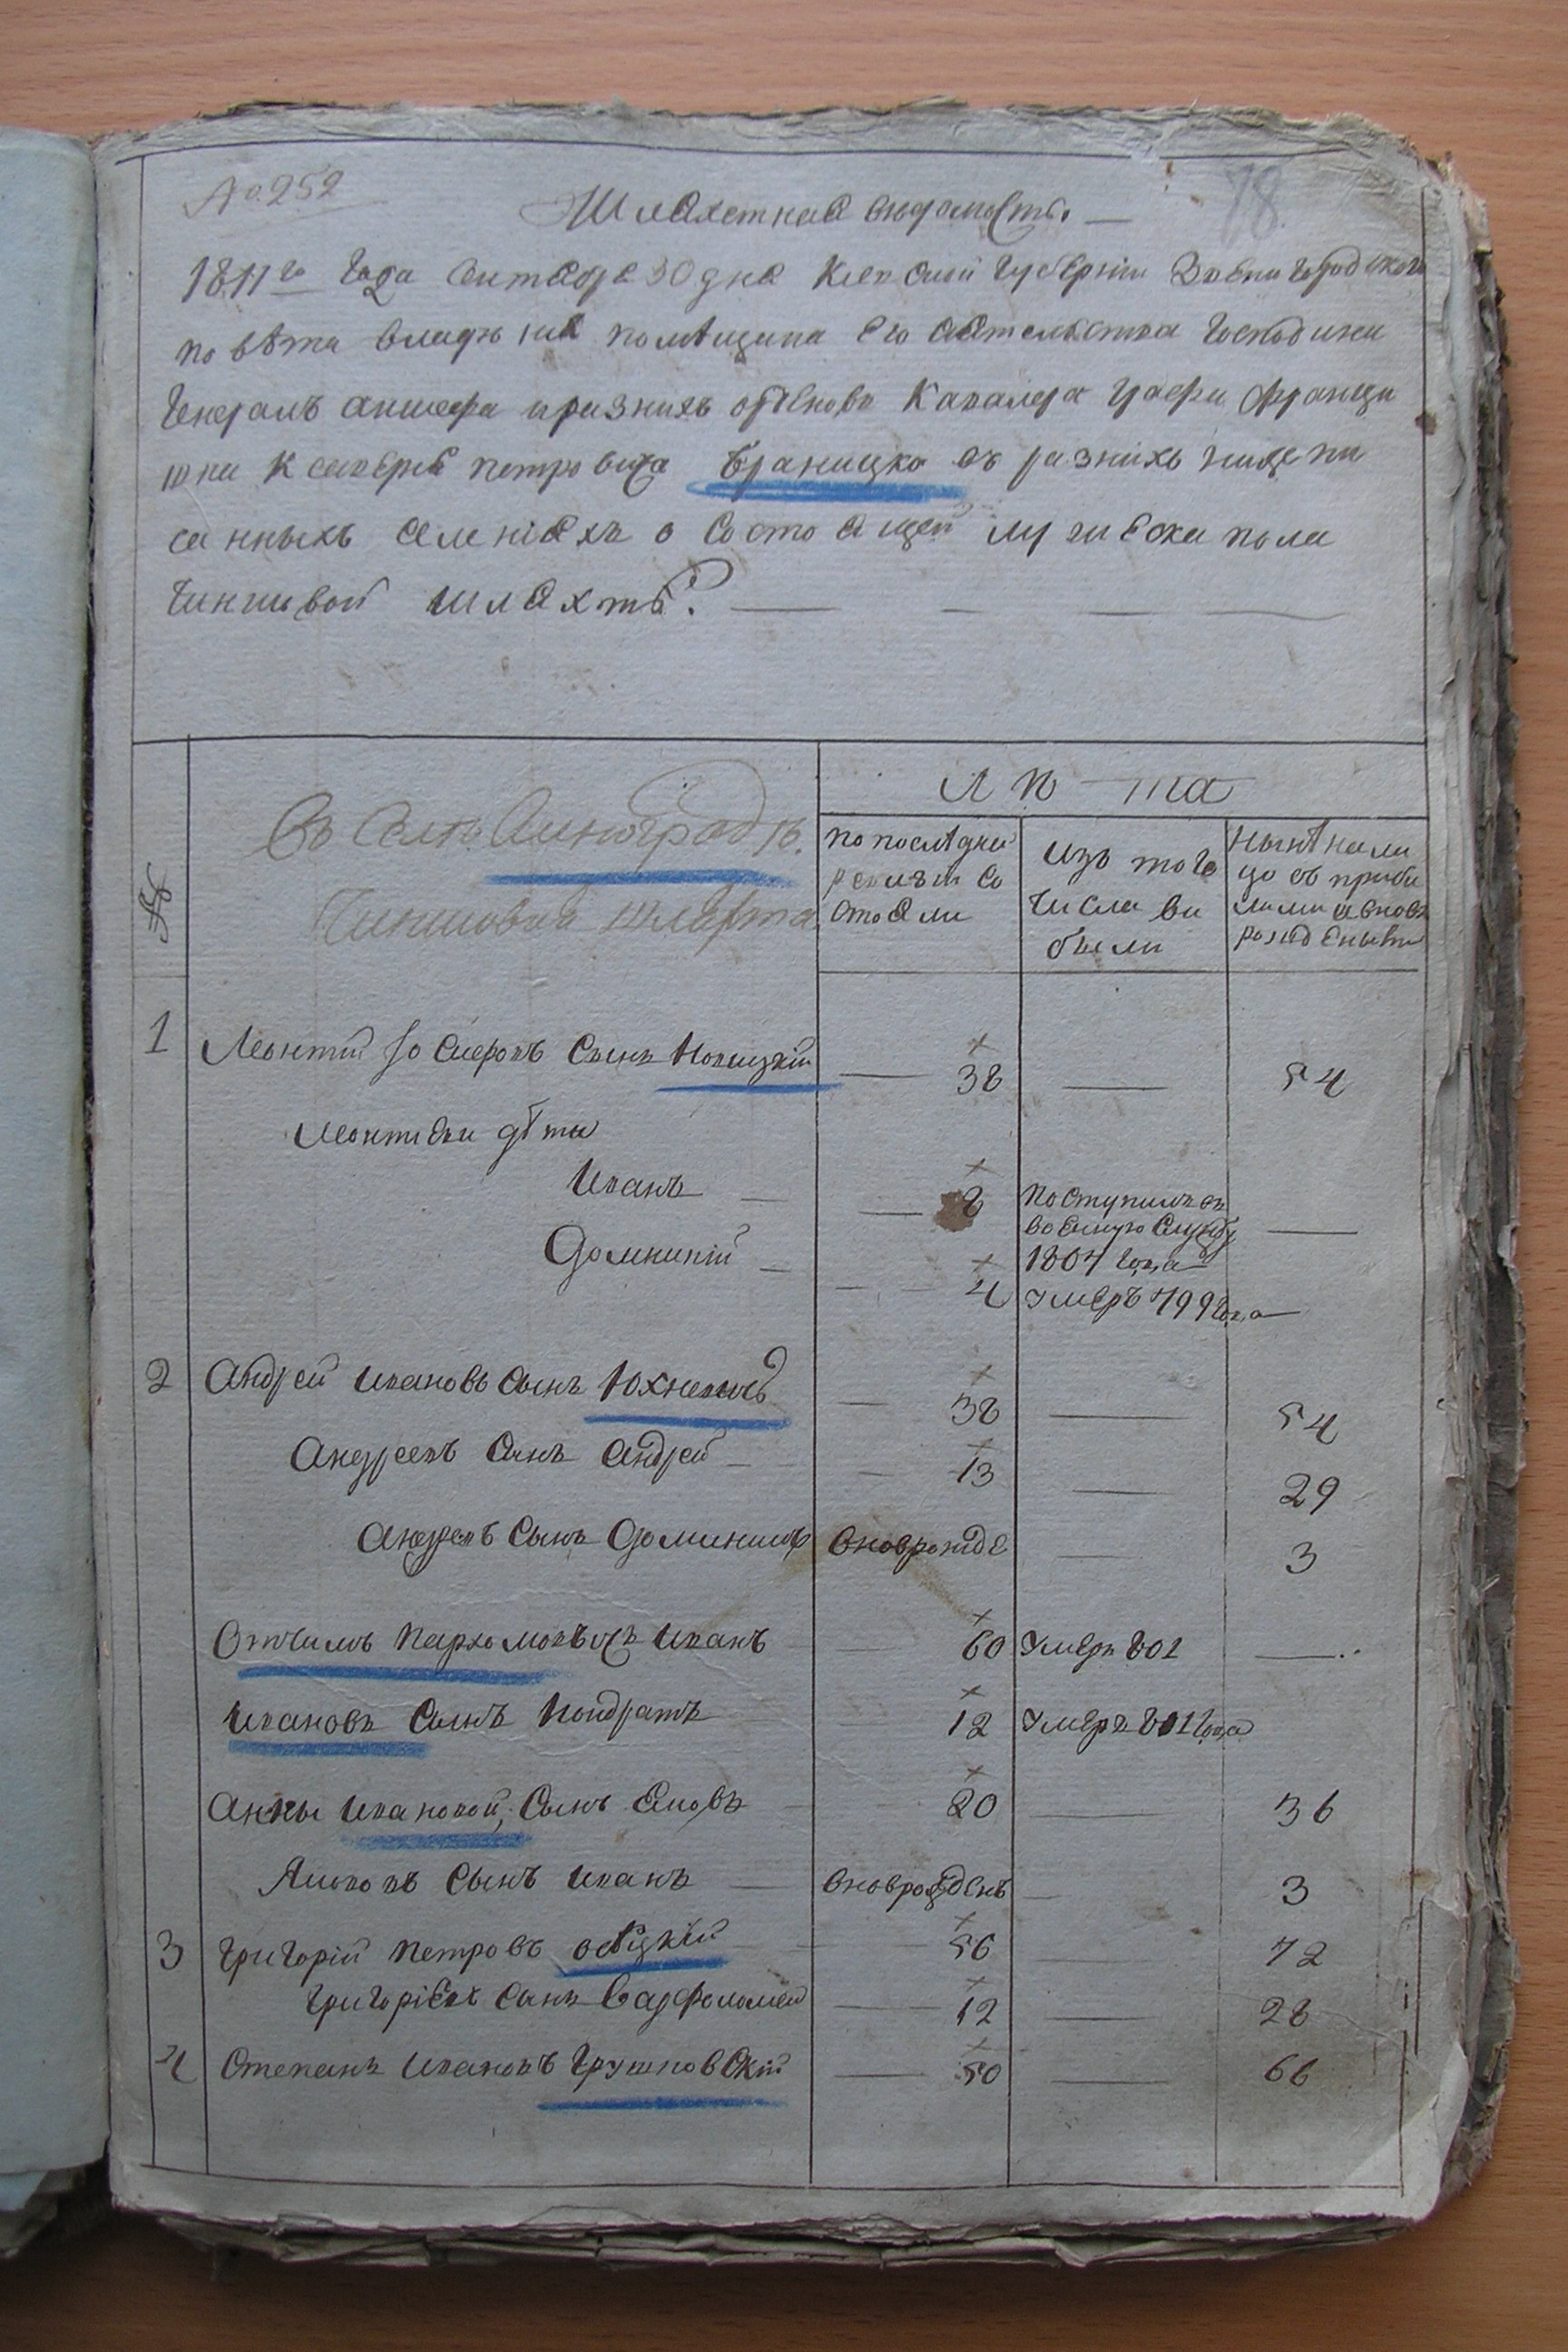 No. 252
78
Шляхетная ведомость.
1811го Года Сентября 30 дня Киевской Губернiи Звенигородского
повѣта владѣния помѣщика Его Сятелства Господина
Генералъ аншефа и разнихъ ордЕновъ Кавалера Графа Францы
шка КсаверЕя петровича Браницкого въ разнихъ нижепи
санныхъ селенiяхъ о Состоящей мужЕска пола
Чиншевой Шляхтѣ.
№
Въ Селѣ Виноградѣ.
Чиншовая шляхта
Лѣта
по послѣдней
ревизiи Со
стояли
изъ того
числа ви
были
Нынѣ нали
цо съ приби
лими и вновь
рождЕными
1 Леонтiй Iосифовъ Сынъ Новицкiй 38 54
Леонтиевы дѣты
Иванъ 8 поступилъ въ
воЕнную Службу
1807 Года
Доминикiй 4 умЕръ 799 Года
2 Андрей Ивановъ Сынъ Юхневичъ 38 54
Андреевъ Сынъ Андрей 13 29
Андреевъ Сынъ Доминикъ вноврожде 3
Отчимъ Пархомовичъ Иванъ 60 УмЕръ 801
Ивановъ Сынъ Кондратъ 12 УмЕръ 801 Года
Анны Ивановой, Сынъ Яковъ 20 36
Яковъ Сынъ Иванъ вноврождЕнъ 3
3 Григорiй Петровъ осѣцкiй 56 72
ГригорiЕвъ Сынъ Варфоломей 12 28
4 Степанъ Ивановъ Грушковскiй 50 66